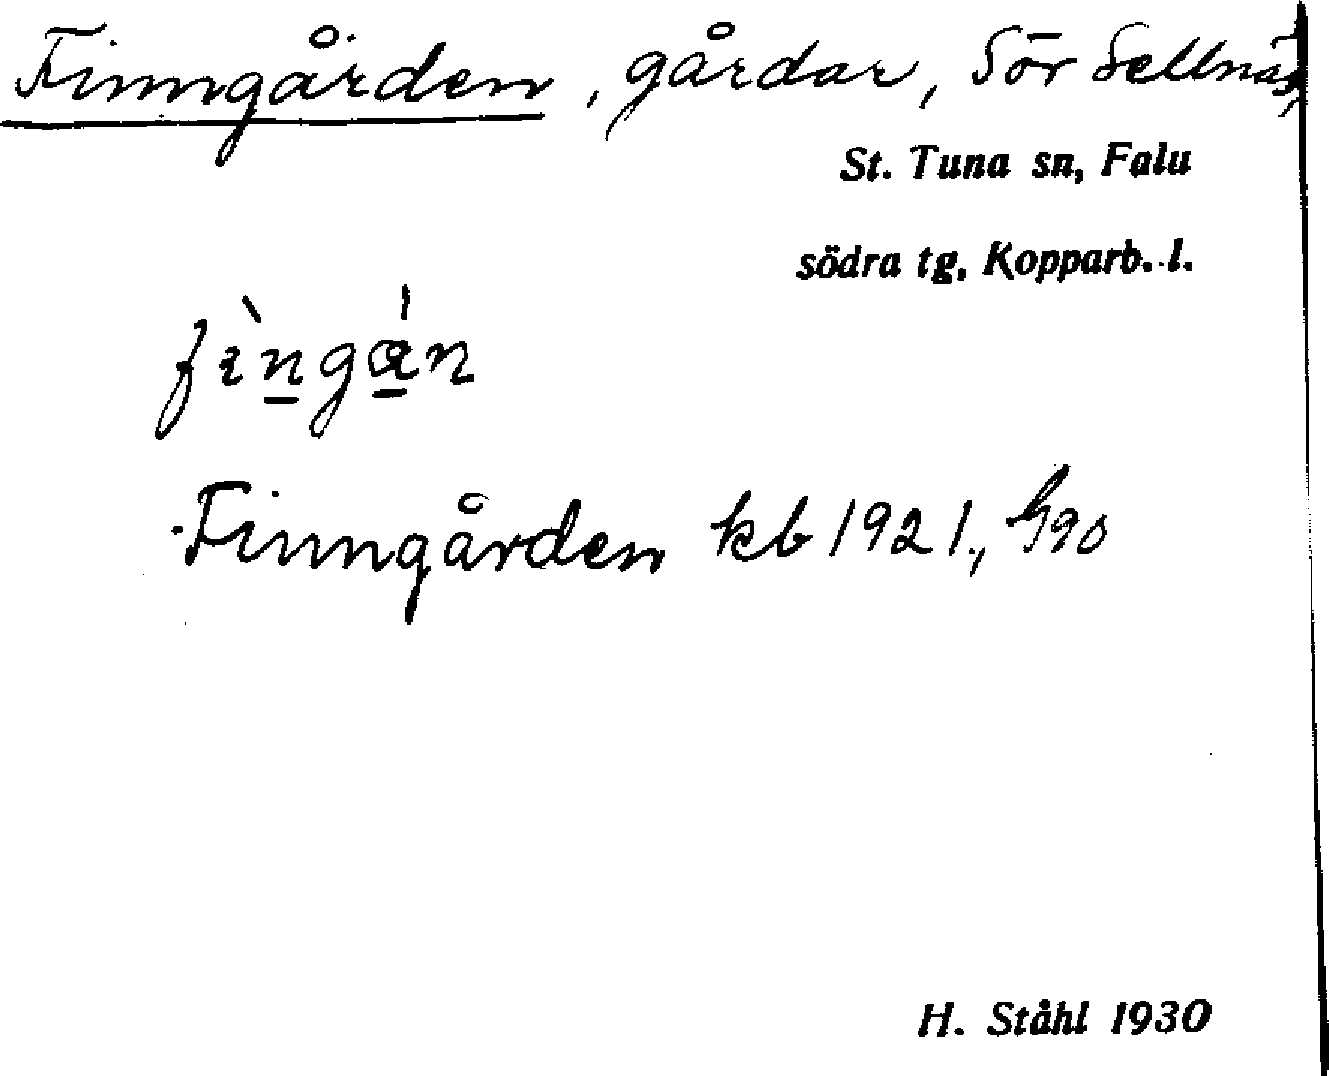 Finngården, gårdar, Sör Sellnäs,
St. Tuna sn, Falu
södra tg, Kopparb. l.
Finngården kb 1921,
H. Ståhl 1930